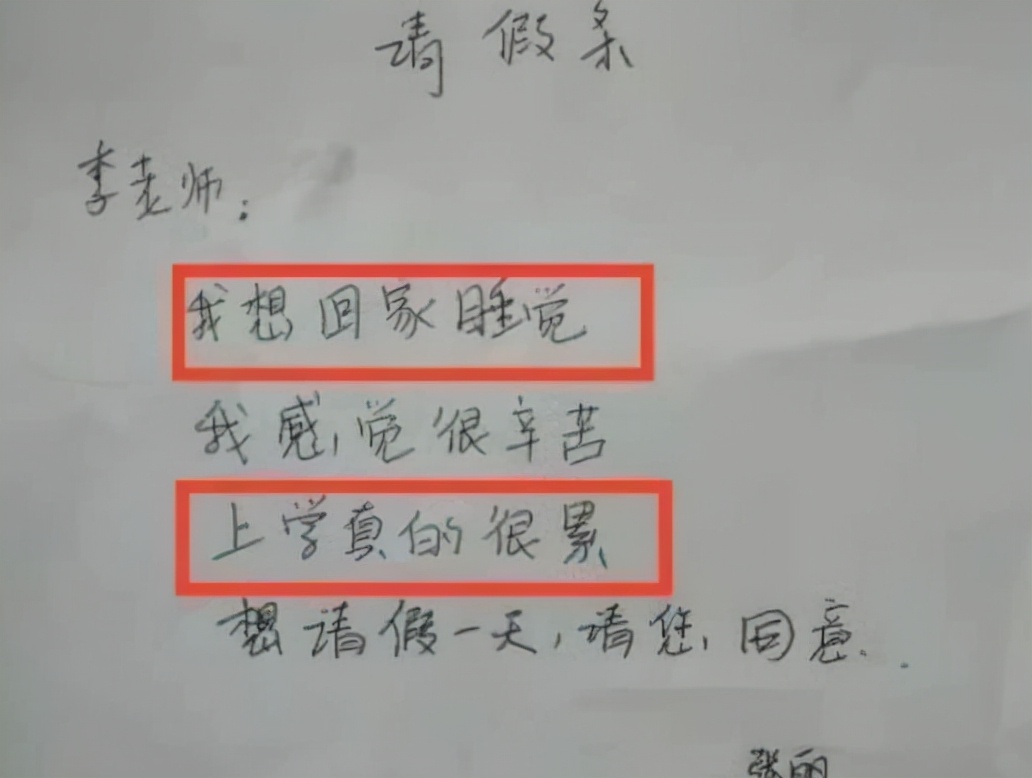 请假条
李老师:
我想回家睡觉
我感觉很辛苦
上学真的很累
想请假一天,请您同意.
张丽